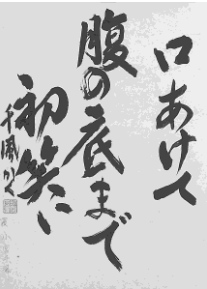 口あけて
腹の底まで
初笑い
千鳳かく